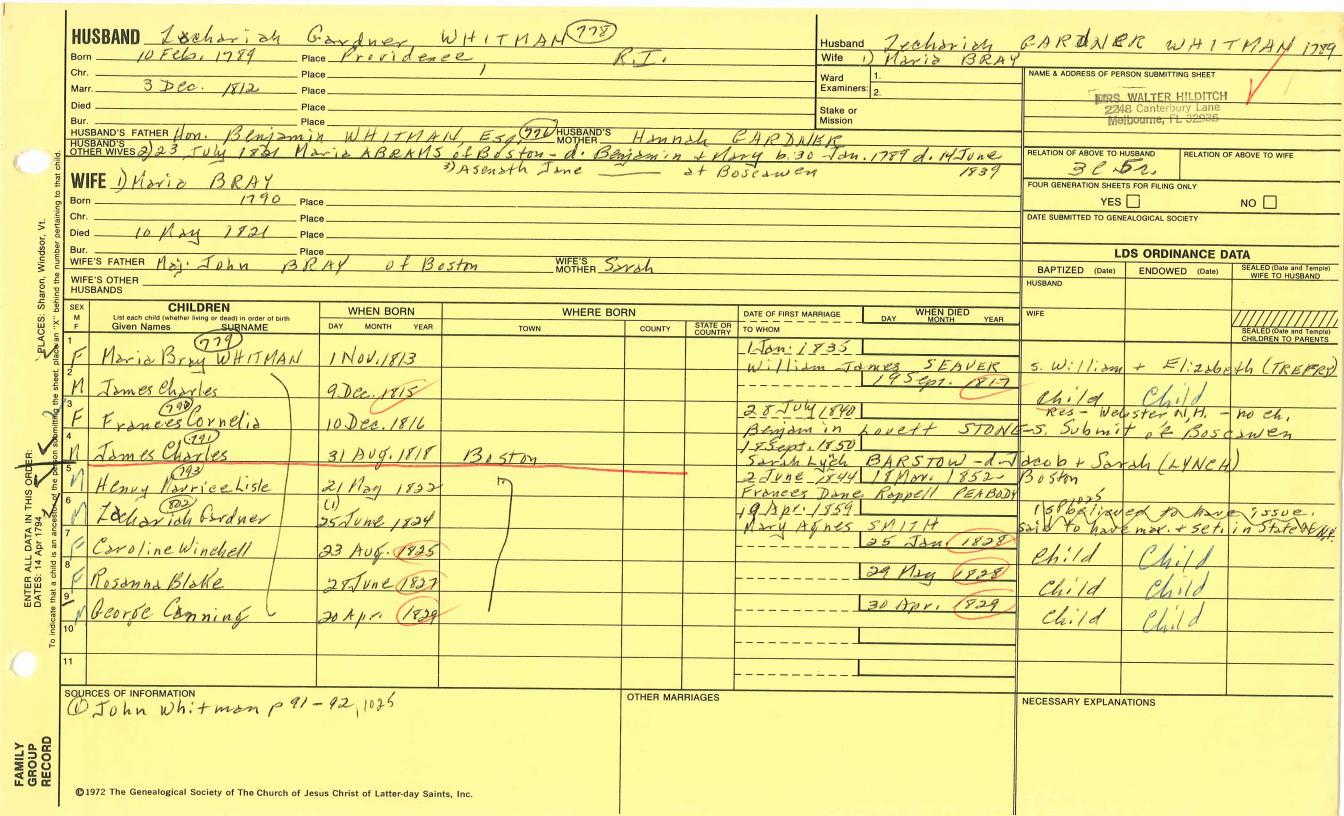 HUSBAND Zechariah Gardner WHITMAN 778
Born 10 Feb. 1789 Place Providence, R.I.
Chr. Place
Marr. 3 Dec. 1812 Place
Died Place
Bur. Place
HUSBAND'S FATHER Hon. Benjamin WHITMAN, Esq HUSBAND'S MOTHER Hannah GARDNER
HUSBAND'S OTHER WIVES 2) 23 July 1821 Maria ABRAMS of Boston - d. Benjamin + Mary b. 30 Jan. 1789 d. 14 June 1839
3) Asenath Jane ______ at Boscawen
WIFE 1) Maria BRAY
Born 1790 Place
Chr. Place
Died 10 May 1821 Place
Bur. Place
WIFE'S FATHER Maj. John BRAY of Boston WIFE'S MOTHER Sarah
WIFE'S OTHER HUSBANDS
Husband Zechariah GARDNER WHITMAN 1789
Wife 1) Maria BRAY
Ward Examiners: 1.
2.
Stake or Mission
NAME & ADDRESS OF PERSON SUBMITTING SHEET
MRS. WALTER HILDITCH
2248 Canterbury Lane
Melbourne, FL 32935
RELATION OF ABOVE TO HUSBAND RELATION OF ABOVE TO WIFE
3C 5r.
FOUR GENERATION SHEETS FOR FILING ONLY
YES NO
DATE SUBMITTED TO GENEALOGICAL SOCIETY
LDS ORDINANCE DATA
BAPTIZED (Date) ENDOWED (Date) SEALED (Date and Temple) WIFE TO HUSBAND
HUSBAND
WIFE
SEALED (Date and Temple) CHILDREN TO PARENTS
SEX M F
CHILDREN
List each child (whether living or dead) in order of birth
Given Names SURNAME
WHEN BORN
DAY MONTH YEAR
WHERE BORN
TOWN COUNTY STATE OR COUNTRY
DATE OF FIRST MARRIAGE
TO WHOM
WHEN DIED
DAY MONTH YEAR
1 F Maria Bray WHITMAN 779 1 Nov. 1813 1 Jan. 1835
William James SEAVER s. William + Elizabeth (TREFRY)
2 M James Charles 9 Dec. 1815 19 Sept. 1817 Child Child
3 F Frances Cornelia 790 10 Dec. 1816 28 July 1840 Res - Webster N.H. - no ch.
Benjamin Lovett STONE - s. Submit of Boscawen
4 M James Charles 791 31 Aug. 1818 Boston 18 Sept. 1850
Sarah Lych BARSTOW - d. Jacob + Sarah (LYNCH)
5 M Henry Maurice Lisle 793 21 May 1822 2 June 1844 18 Mar. 1852 Boston
Frances Dane Roppell PEABODY
6 M Zechariah Gardner 802 (1) 25 June 1824 19 Apr. 1859 is believed to have issue. 1025
Mary Agnes SMITH said to have mar. + set. in State of N.Y.
7 F Caroline Winchell 23 Aug. 1825 25 Jan 1828 Child Child
8 F Rosanna Blake 28 June 1827 29 May 1828 Child Child
9 M George Canning 20 Apr. 1829 30 Apr. 1829 Child Child
10
11
SOURCES OF INFORMATION
① John Whitman p 91-92, 1025
OTHER MARRIAGES
NECESSARY EXPLANATIONS
©1972 The Genealogical Society of The Church of Jesus Christ of Latter-day Saints, Inc.
FAMILY GROUP RECORD
ENTER ALL DATA IN THIS ORDER:
DATES: 14 Apr 1794
PLACES: Sharon, Windsor, Vt.
To indicate that a child is an ancestor of the person submitting the sheet, place an "X" behind the number pertaining to that child.